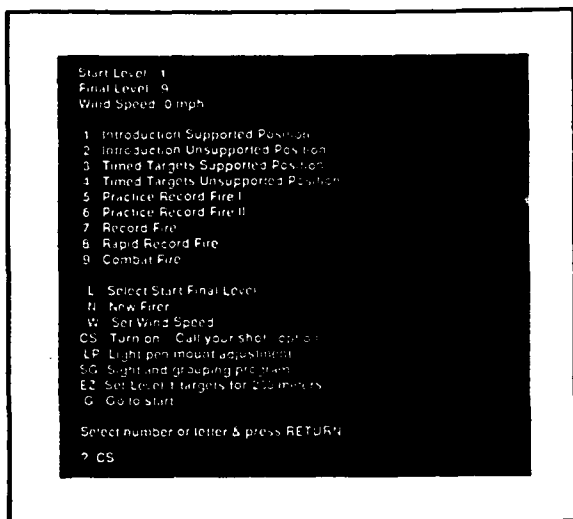 Start Level 1
Final Level 9
Wind Speed 0 mph
1 Introduction Supported Position
2 Introduction Unsupported Position
3 Timed Targets Supported Position
4 Timed Targets Unsupported Position
5 Practice Record Fire I
6 Practice Record Fire II
7 Record Fire
8 Rapid Record Fire
9 Combat Fire
L Select Start Final Level
N New Firer
W Set Wind Speed
CS Turn on Call your shot option
LP Light pen mount adjustment
SG Sight and grouping program
EZ Set Level 1 targets for 200 meters
G Go to start
Select number or letter & press RETURN
? CS